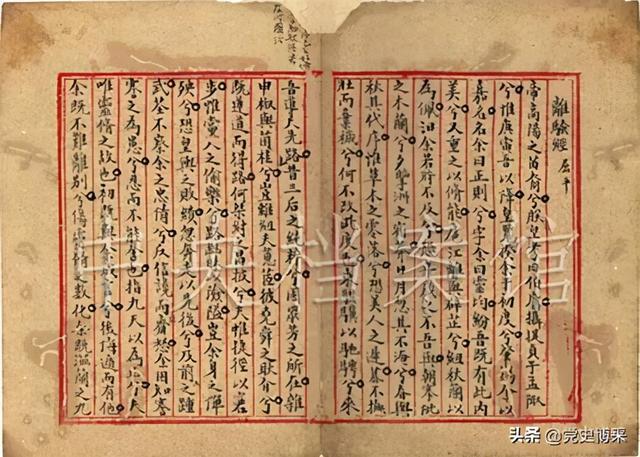 離騷經 屈平
帝高陽之苗裔兮朕皇考曰伯庸攝提貞于孟陬
兮惟庚寅吾以降皇覽揆余于初度兮肇錫余以
嘉名名余曰正則兮字余曰靈均紛吾既有此內
美兮又重之以脩能扈江離與辟芷兮紉秋蘭以
為佩汨余若將不及兮恐年歲之不吾與朝搴阰
之木蘭兮夕攬洲之宿莽日月忽其不淹兮春與
秋其代序惟草木之零落兮恐美人之遲暮不撫
壯而棄穢兮何不改此度也乘騏驥以馳騁兮來
吾導夫先路昔三后之純粹兮固眾芳之所在雜
申椒與菌桂兮豈維紉夫蕙茝彼堯舜之耿介兮
既遵道而得路何桀紂之昌披兮夫惟捷徑以窘
步惟黨人之偷樂兮路幽昧以險隘豈余身之憚
殃兮恐皇輿之敗績忽奔走以先後兮及前王之踵
武荃不察余之中情兮反信讒而齌怒余固知謇
謇之為患兮忍而不能舍也指九天以為正兮夫
唯靈脩之故也初既與余成言兮後悔遁而有他
余既不難離別兮傷靈脩之數化余既滋蘭之九
中央档案馆
头条 @党史博采